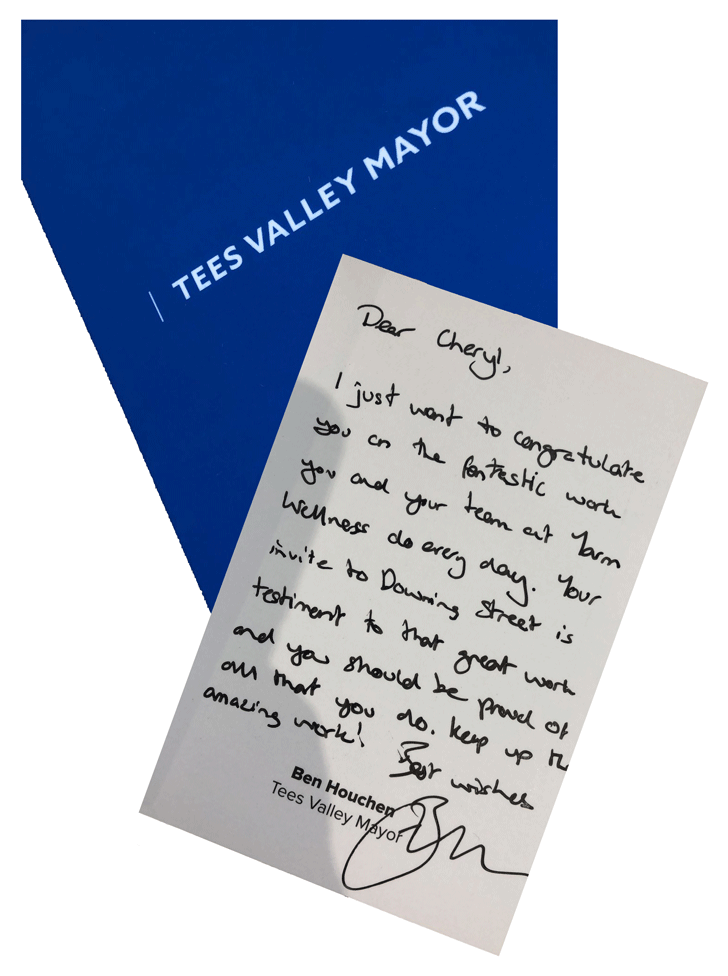 | TEES VALLEY MAYOR
Dear Cheryl,
I just want to congratulate
you on the fantastic work
you and your team at Yarm
Wellness do every day. Your
invite to Downing Street is
testiment to that great work
and you should be proud of
all that you do. Keep up the
amazing work!
Best wishes
Ben Houchen
Tees Valley Mayor
Ben